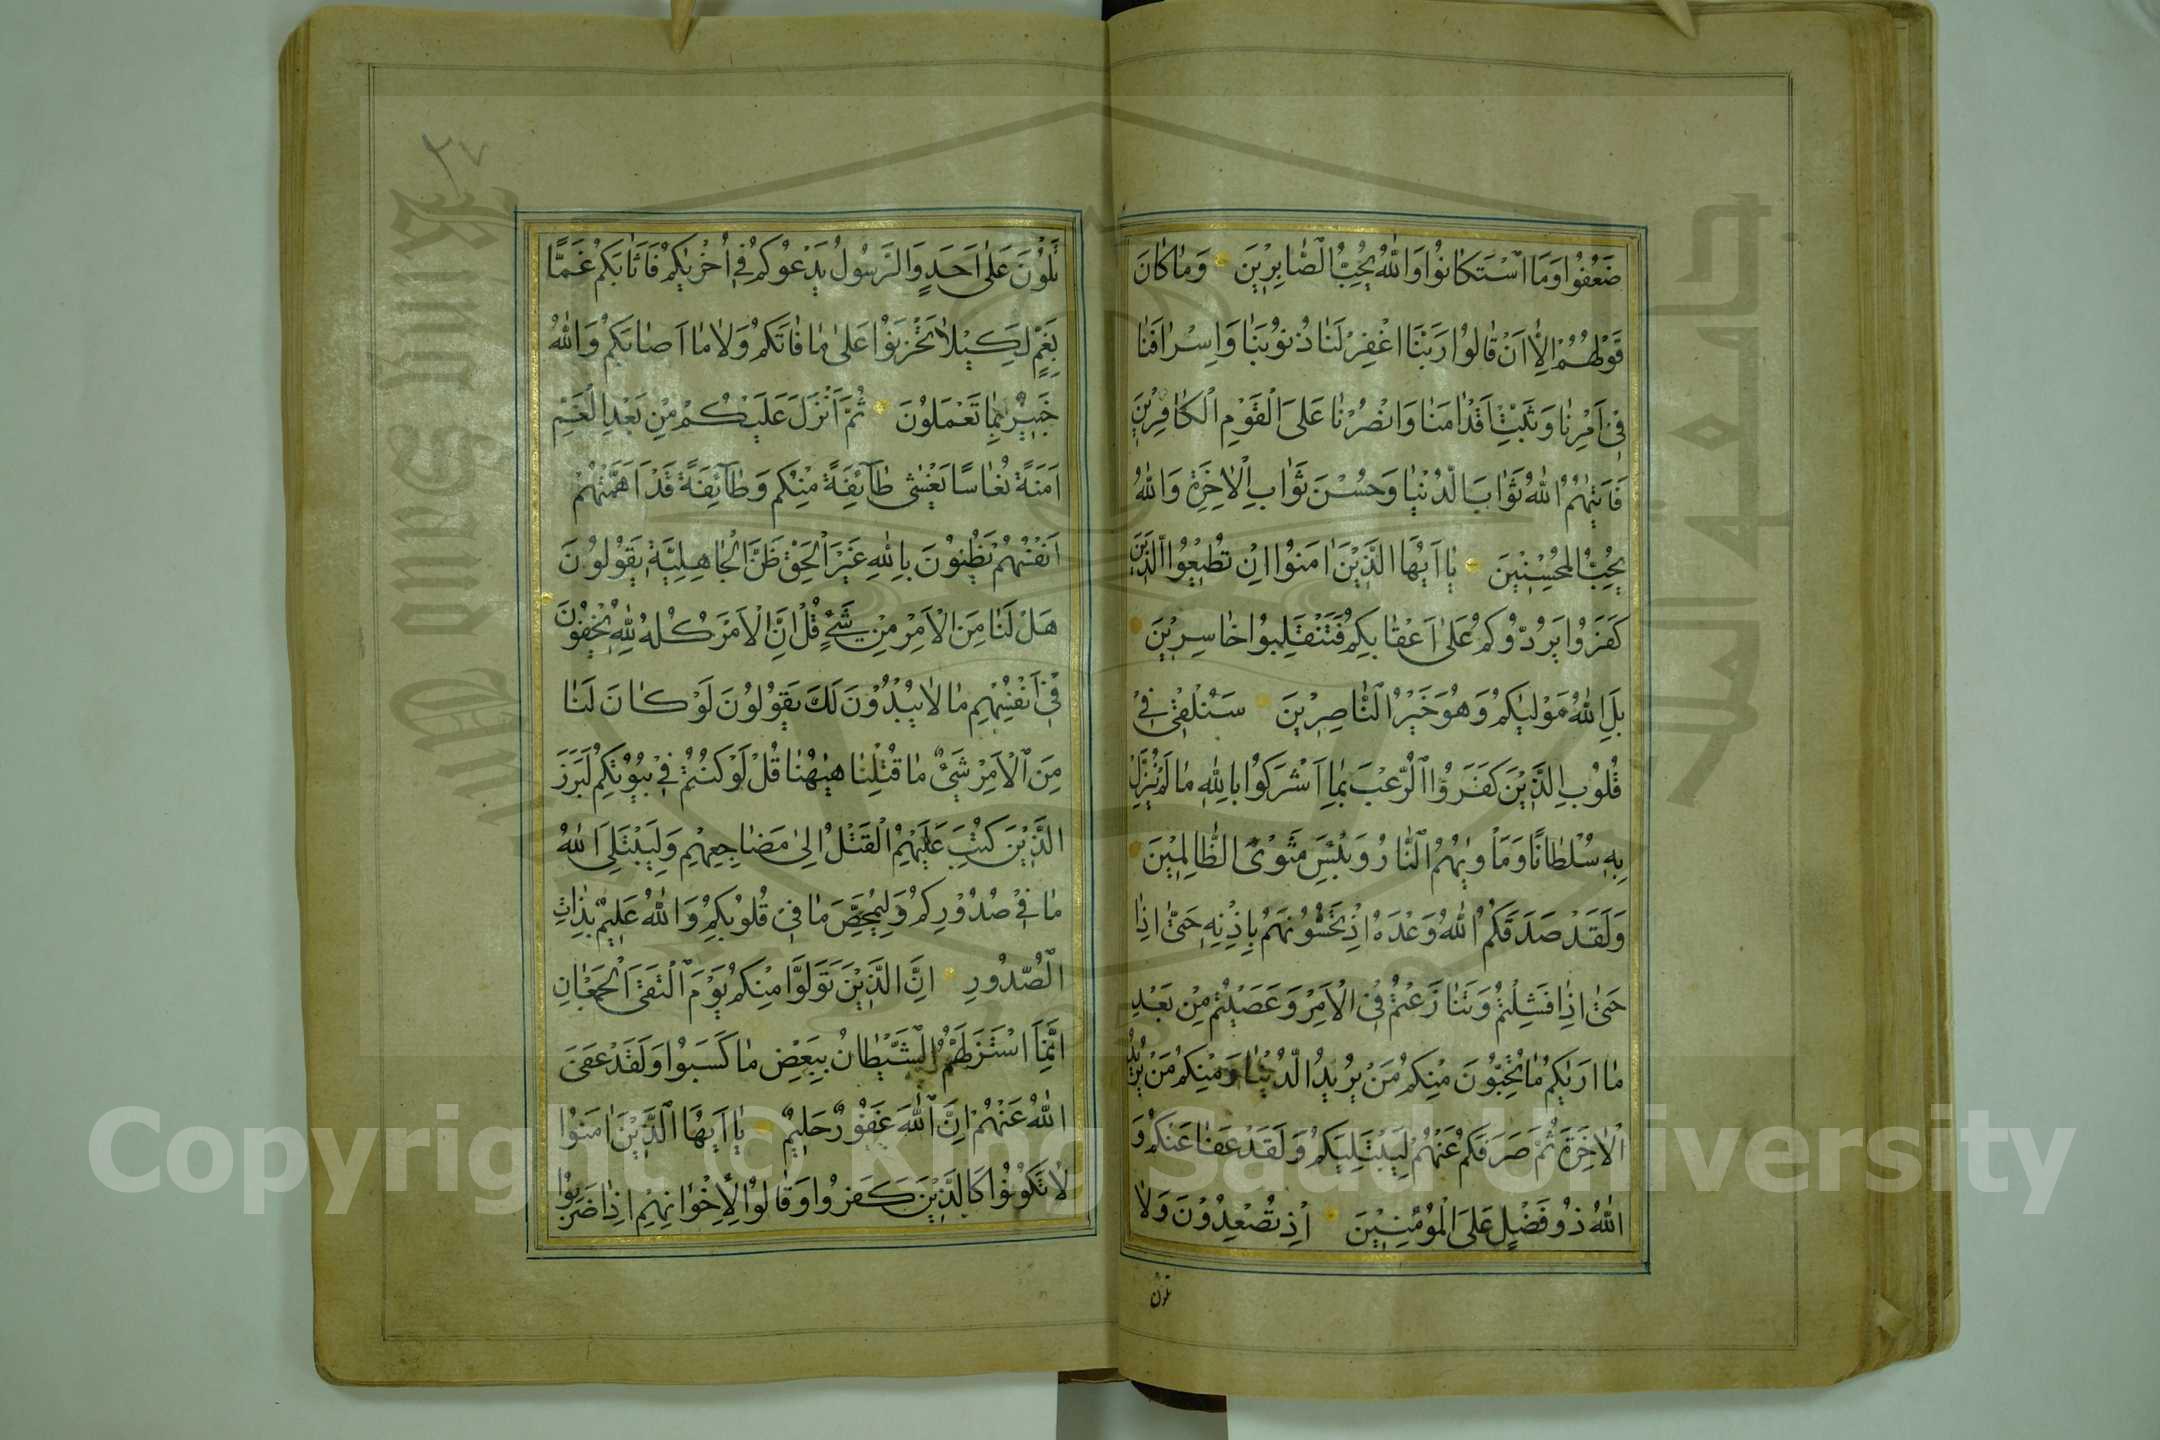 ضَعُفُوا وَمَا اسْتَكَانُوا وَاللّٰهُ يُحِبُّ الصَّابِرِينَ وَمَا كَانَ
قَوْلَهُمْ اِلَّا اَنْ قَالُوا رَبَّنَا اغْفِرْ لَنَا ذُنُوبَنَا وَاِسْرَافَنَا
فِى اَمْرِنَا وَثَبِّتْ اَقْدَامَنَا وَانْصُرْنَا عَلَى الْقَوْمِ الْكَافِرِينَ
فَاٰتٰيهُمُ اللّٰهُ ثَوَابَ الدُّنْيَا وَحُسْنَ ثَوَابِ الْاٰخِرَةِ وَاللّٰهُ
يُحِبُّ الْمُحْسِنِينَ يَا اَيُّهَا الَّذِينَ اٰمَنُوا اِنْ تُطِيعُوا الَّذِينَ
كَفَرُوا يَرُدُّوكُمْ عَلٰى اَعْقَابِكُمْ فَتَنْقَلِبُوا خَاسِرِينَ
بَلِ اللّٰهُ مَوْلٰيكُمْ وَهُوَ خَيْرُ النَّاصِرِينَ سَنُلْقِى فِى
قُلُوبِ الَّذِينَ كَفَرُوا الرُّعْبَ بِمَا اَشْرَكُوا بِاللّٰهِ مَا لَمْ يُنَزِّلْ
بِهِ سُلْطَانًا وَمَأْوٰيهُمُ النَّارُ وَبِئْسَ مَثْوَى الظَّالِمِينَ
وَلَقَدْ صَدَقَكُمُ اللّٰهُ وَعْدَهُ اِذْ تَحُسُّونَهُمْ بِاِذْنِهِ حَتّٰى اِذَا
حَتّٰى اِذَا فَشِلْتُمْ وَتَنَازَعْتُمْ فِى الْاَمْرِ وَعَصَيْتُمْ مِنْ بَعْدِ
مَا اَرٰيكُمْ مَا تُحِبُّونَ مِنْكُمْ مَنْ يُرِيدُ الدُّنْيَا وَمِنْكُمْ مَنْ يُرِيدُ
الْاٰخِرَةَ ثُمَّ صَرَفَكُمْ عَنْهُمْ لِيَبْتَلِيَكُمْ وَلَقَدْ عَفَا عَنْكُمْ وَ
اللّٰهُ ذُو فَضْلٍ عَلَى الْمُؤْمِنِينَ اِذْ تُصْعِدُونَ وَلَا
تلون
٢٧
تَلْوُنَ عَلٰى اَحَدٍ وَالرَّسُولُ يَدْعُوكُمْ فِى اُخْرٰيكُمْ فَاَثَابَكُمْ غَمًّا
بِغَمٍّ لِكَيْلَا تَحْزَنُوا عَلٰى مَا فَاتَكُمْ وَلَا مَا اَصَابَكُمْ وَاللّٰهُ
خَبِيرٌ بِمَا تَعْمَلُونَ ثُمَّ اَنْزَلَ عَلَيْكُمْ مِنْ بَعْدِ الْغَمِّ
اَمَنَةً نُعَاسًا يَغْشٰى طَآئِفَةً مِنْكُمْ وَطَآئِفَةٌ قَدْ اَهَمَّتْهُمْ
اَنْفُسُهُمْ يَظُنُّونَ بِاللّٰهِ غَيْرَ الْحَقِّ ظَنَّ الْجَاهِلِيَّةِ يَقُولُونَ
هَلْ لَنَا مِنَ الْاَمْرِ مِنْ شَىْءٍ قُلْ اِنَّ الْاَمْرَ كُلَّهُ لِلّٰهِ يُخْفُونَ
فِى اَنْفُسِهِمْ مَا لَا يُبْدُونَ لَكَ يَقُولُونَ لَوْ كَانَ لَنَا
مِنَ الْاَمْرِ شَىْءٌ مَا قُتِلْنَا هٰيهُنَا قُلْ لَوْ كُنْتُمْ فِى بُيُوتِكُمْ لَبَرَزَ
الَّذِينَ كُتِبَ عَلَيْهِمُ الْقَتْلُ اِلٰى مَضَاجِعِهِمْ وَلِيَبْتَلِىَ اللّٰهُ
مَا فِى صُدُورِكُمْ وَلِيُمَحِّصَ مَا فِى قُلُوبِكُمْ وَاللّٰهُ عَلِيمٌ بِذَاتِ
الصُّدُورِ اِنَّ الَّذِينَ تَوَلَّوْا مِنْكُمْ يَوْمَ الْتَقَى الْجَمْعَانِ
اِنَّمَا اسْتَزَلَّهُمُ الشَّيْطَانُ بِبَعْضِ مَا كَسَبُوا وَلَقَدْ عَفَى
اللّٰهُ عَنْهُمْ اِنَّ اللّٰهَ غَفُورٌ حَلِيمٌ يَا اَيُّهَا الَّذِينَ اٰمَنُوا
لَا تَكُونُوا كَالَّذِينَ كَفَرُوا وَقَالُوا لِاِخْوَانِهِمْ اِذَا ضَرَبُوا
Copyright © King Saud University